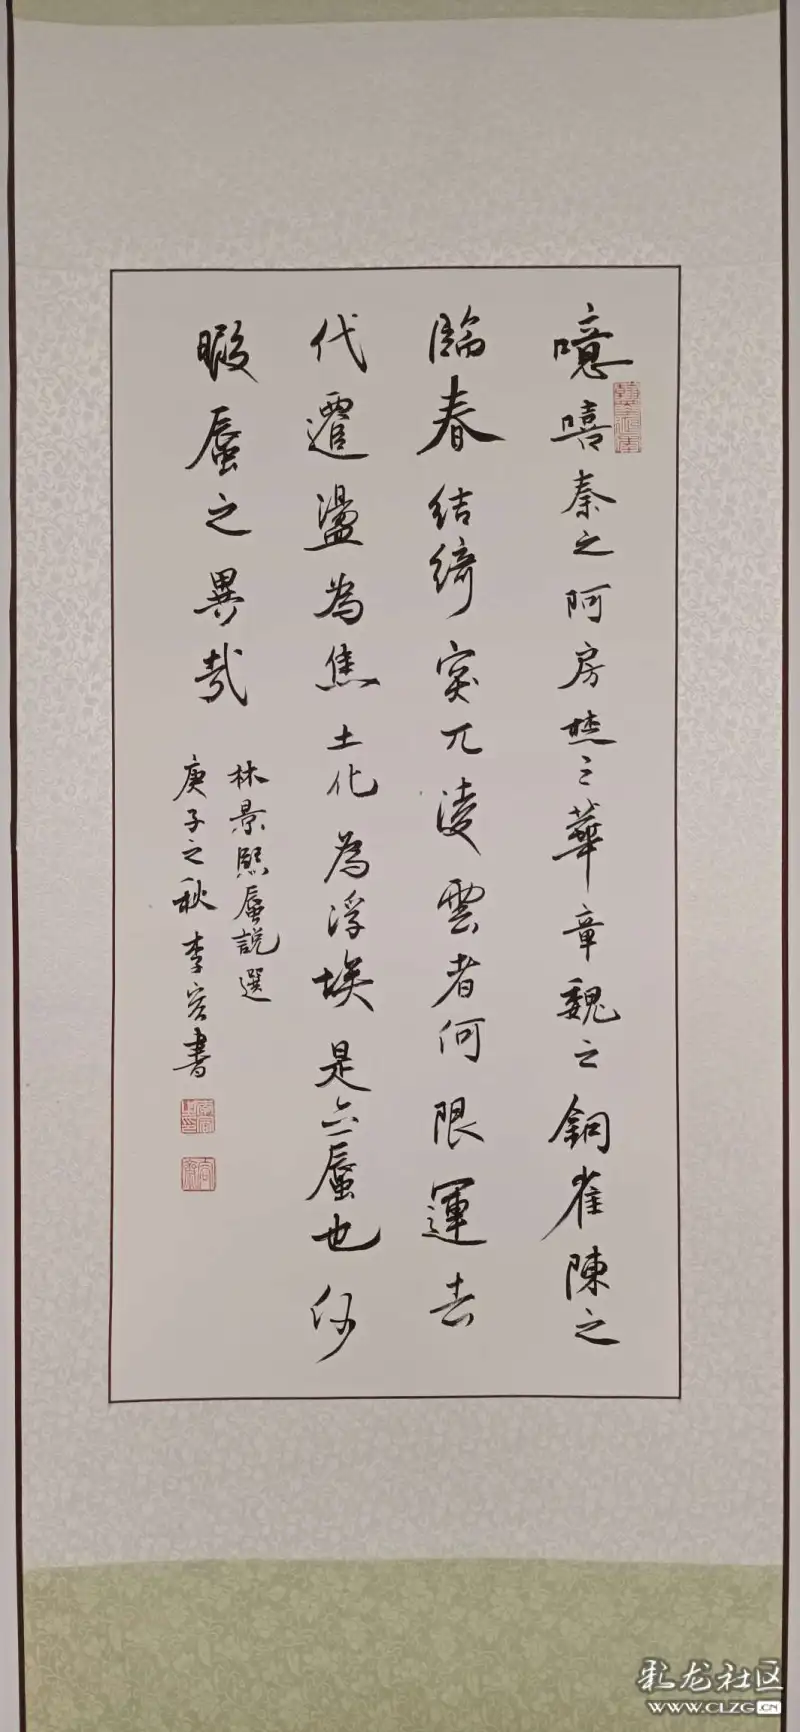 噫嘻秦之阿房楚之華章魏之銅雀陳之
臨春結綺突兀淩雲者何限運去
代遷盪為焦土化為浮埃是亦蜃也何
暇蜃之異哉
林景熙蜃說選
庚子之秋 李容書
彩龙社区
WWW.CLZG.CN